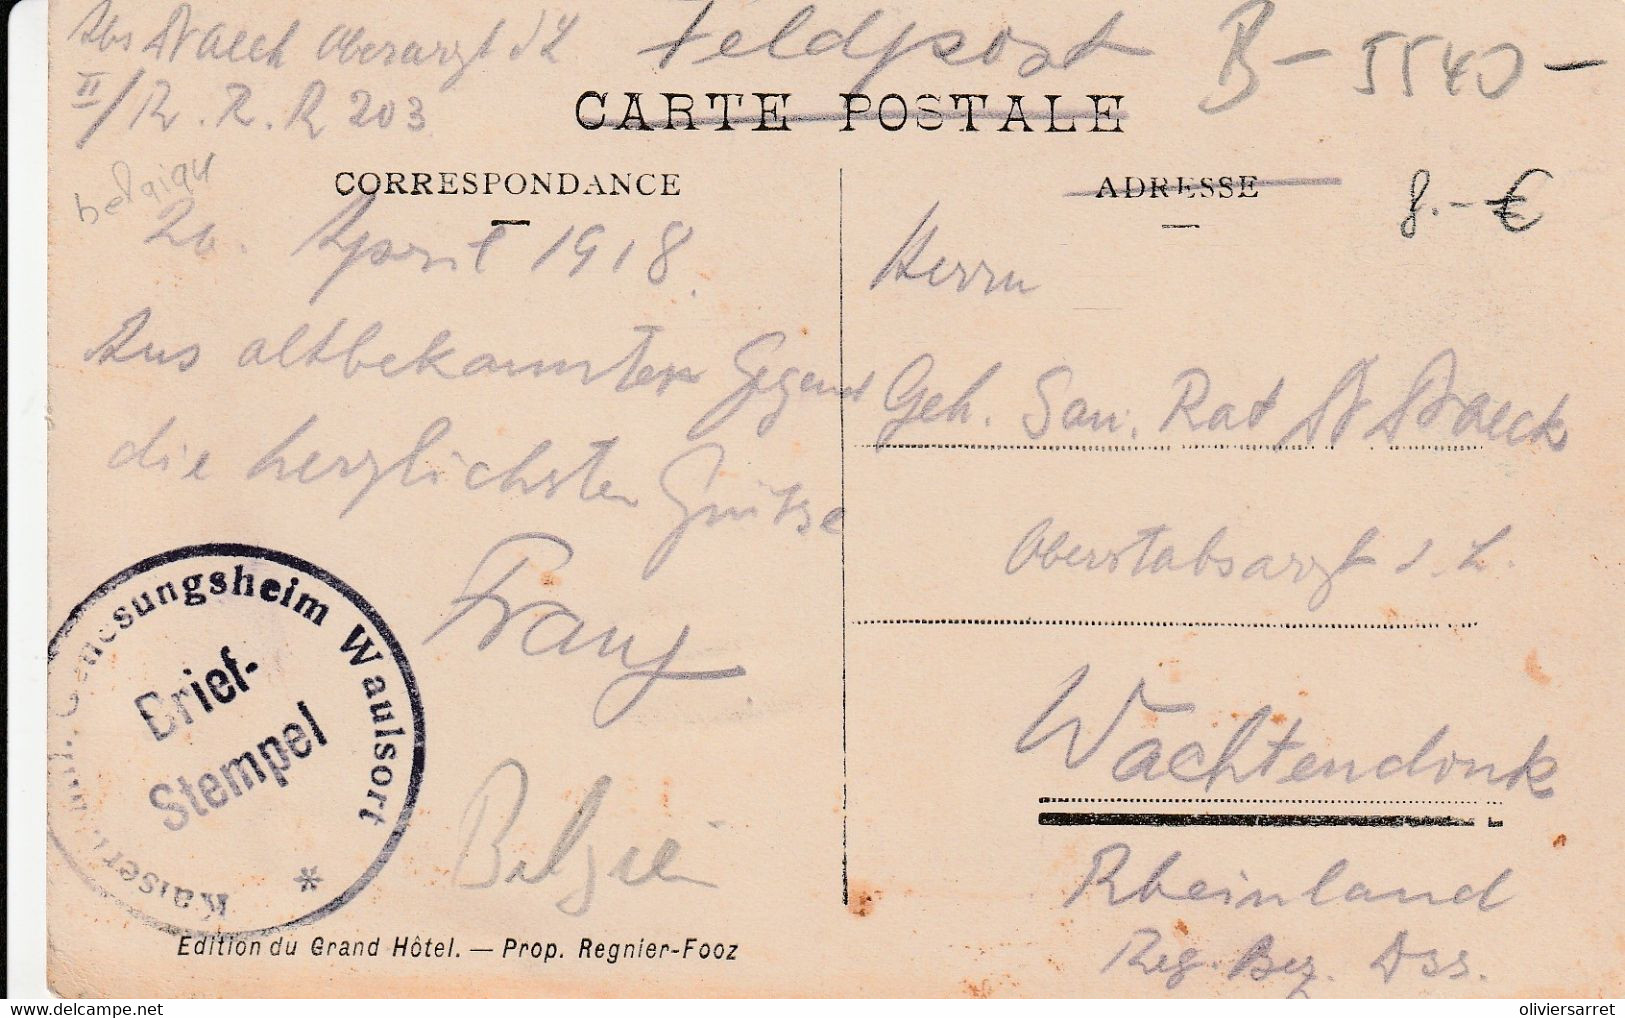 Abs Draeck Oberarzt d L
II/R. R. R 203
Feldpost
B - 5540 -
CARTE POSTALE
belgique
CORRESPONDANCE
ADRESSE
8.- €
20. April 1918.
Aus altbekannter Gegend
die herzlichsten Grüsse
Franz
Herrn
Geh. San. Rat Dr Draeck
Oberstabsarzt d. L.
Wachtendonk
Rheinland
Reg. Bez. Dss.
Genesungsheim Waulsort
Brief-
Stempel
*
Belgien
Edition du Grand Hôtel. — Prop. Regnier-Fooz
oliviersarret